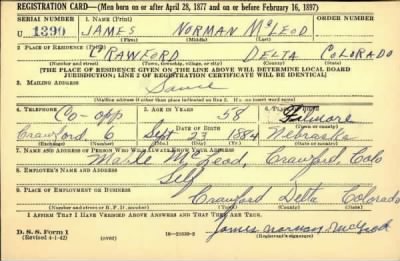 REGISTRATION CARD—(Men born on or after April 28, 1877 and on or before February 16, 1897)
SERIAL NUMBER 1. NAME (Print)
U 1390 JAMES NORMAN McLEOD
(First) (Middle) (Last)
2. PLACE OF RESIDENCE (Print)
CRAWFORD DELTA COLORADO
(Number and street) (Town, township, village, or city) (County) (State)
[THE PLACE OF RESIDENCE GIVEN ON THE LINE ABOVE WILL DETERMINE LOCAL BOARD
JURISDICTION; LINE 2 OF REGISTRATION CERTIFICATE WILL BE IDENTICAL]
3. MAILING ADDRESS
Same
[Mailing address if other than place indicated on line 2. If same insert word same]
4. TELEPHONE 5. AGE IN YEARS 6. PLACE OF BIRTH
Co-opp 58 Filmore
DATE OF BIRTH (Town or county)
Crawford 6 Sept 23 1884 Nebraska
(Exchange) (Number) (Mo.) (Day) (Yr.) (State or country)
7. NAME AND ADDRESS OF PERSON WHO WILL ALWAYS KNOW YOUR ADDRESS
McLeod, Crawford, Colo
8. EMPLOYER'S NAME AND ADDRESS
Self
9. PLACE OF EMPLOYMENT OR BUSINESS
Crawford Delta Colorado
(Number and street or R. F. D. number) (Town) (County) (State)
I AFFIRM THAT I HAVE VERIFIED ABOVE ANSWERS AND THAT THEY ARE TRUE.
D. S. S. Form 1
(Revised 4-1-42) (over) James Norman McLeod
(Registrant's signature)